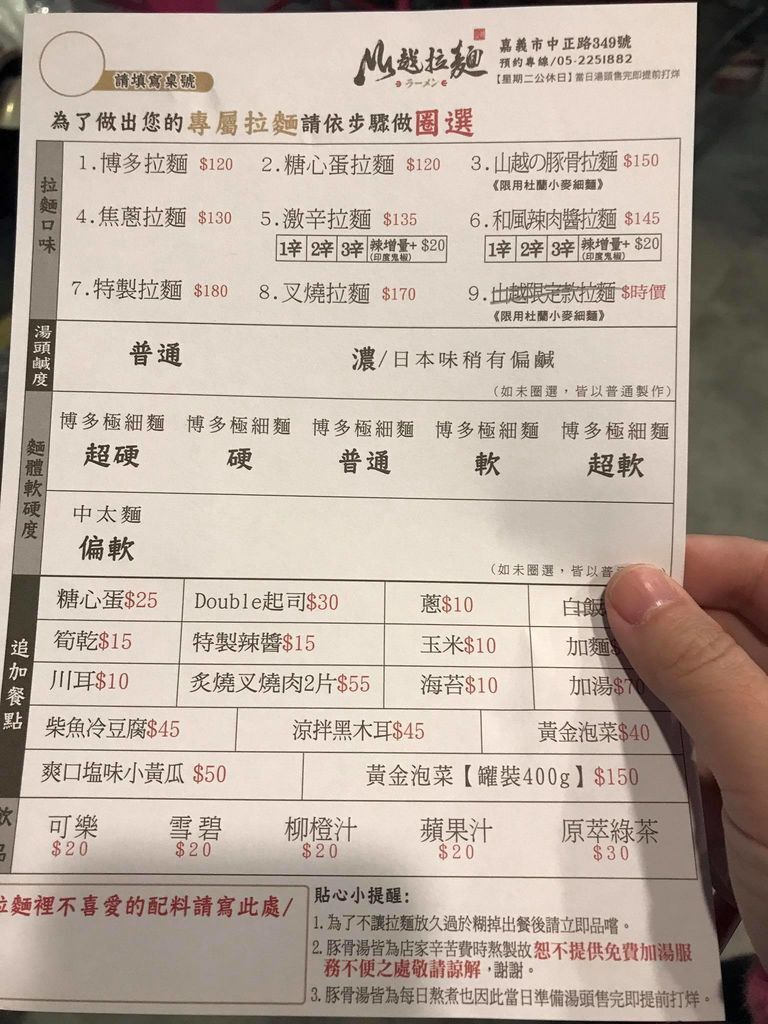 請填寫桌號
山越拉麵
ラーメン
嘉義市中正路349號
預約專線/05-2251882
【星期二公休日】當日湯頭售完即提前打烊
為了做出您的專屬拉麵請依步驟做圈選
拉麵口味
1.博多拉麵 $120 2.糖心蛋拉麵 $120 3.山越の豚骨拉麵 $150
《限用杜蘭小麥細麵》
4.焦蔥拉麵 $130 5.激辛拉麵 $135 6.和風辣肉醬拉麵 $145
1辛 2辛 3辛 辣增量+ $20 (印度鬼椒) 1辛 2辛 3辛 辣增量+ $20 (印度鬼椒)
7.特製拉麵 $180 8.叉燒拉麵 $170 9.山越限定款拉麵 $時價
《限用杜蘭小麥細麵》
湯頭鹹度
普通 濃/日本味稍有偏鹹
(如未圈選，皆以普通製作)
麵體軟硬度
博多極細麵 博多極細麵 博多極細麵 博多極細麵 博多極細麵
超硬 硬 普通 軟 超軟
中太麵
偏軟
(如未圈選，皆以普
追加餐點
糖心蛋$25 Double起司$30 蔥$10 白飯
筍乾$15 特製辣醬$15 玉米$10 加麵$
川耳$10 炙燒叉燒肉2片$55 海苔$10 加湯$70
柴魚冷豆腐$45 涼拌黑木耳$45 黃金泡菜$40
爽口塩味小黃瓜 $50 黃金泡菜【罐裝400g】$150
飲品
可樂 雪碧 柳橙汁 蘋果汁 原萃綠茶
$20 $20 $20 $20 $30
拉麵裡不喜愛的配料請寫此處/
貼心小提醒:
1.為了不讓拉麵放久過於糊掉出餐後請立即品嚐。
2.豚骨湯皆為店家辛苦費時熬製故恕不提供免費加湯服
務不便之處敬請諒解，謝謝。
3.豚骨湯皆為每日熬煮也因此當日準備湯頭售完即提前打烊。